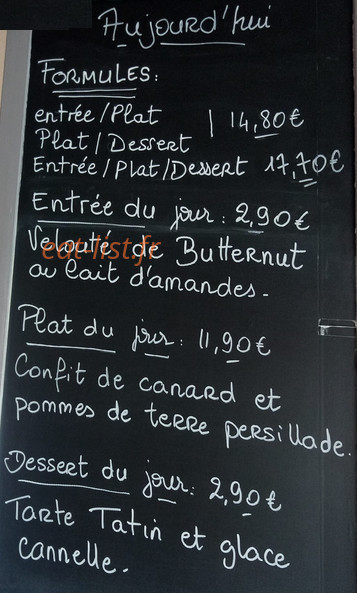 Aujourd'hui
FORMULES:
entrée/Plat | 14,80€
Plat/Dessert
Entrée/Plat/Dessert 17,70€
Entrée du jour: 2,90€
Velouté de Butternut
eat-list.fr
au lait d'amandes.
Plat du jour: 11,90€
Confit de canard et
pommes de terre persillade.
Dessert du jour: 2,90€
Tarte Tatin et glace
cannelle.